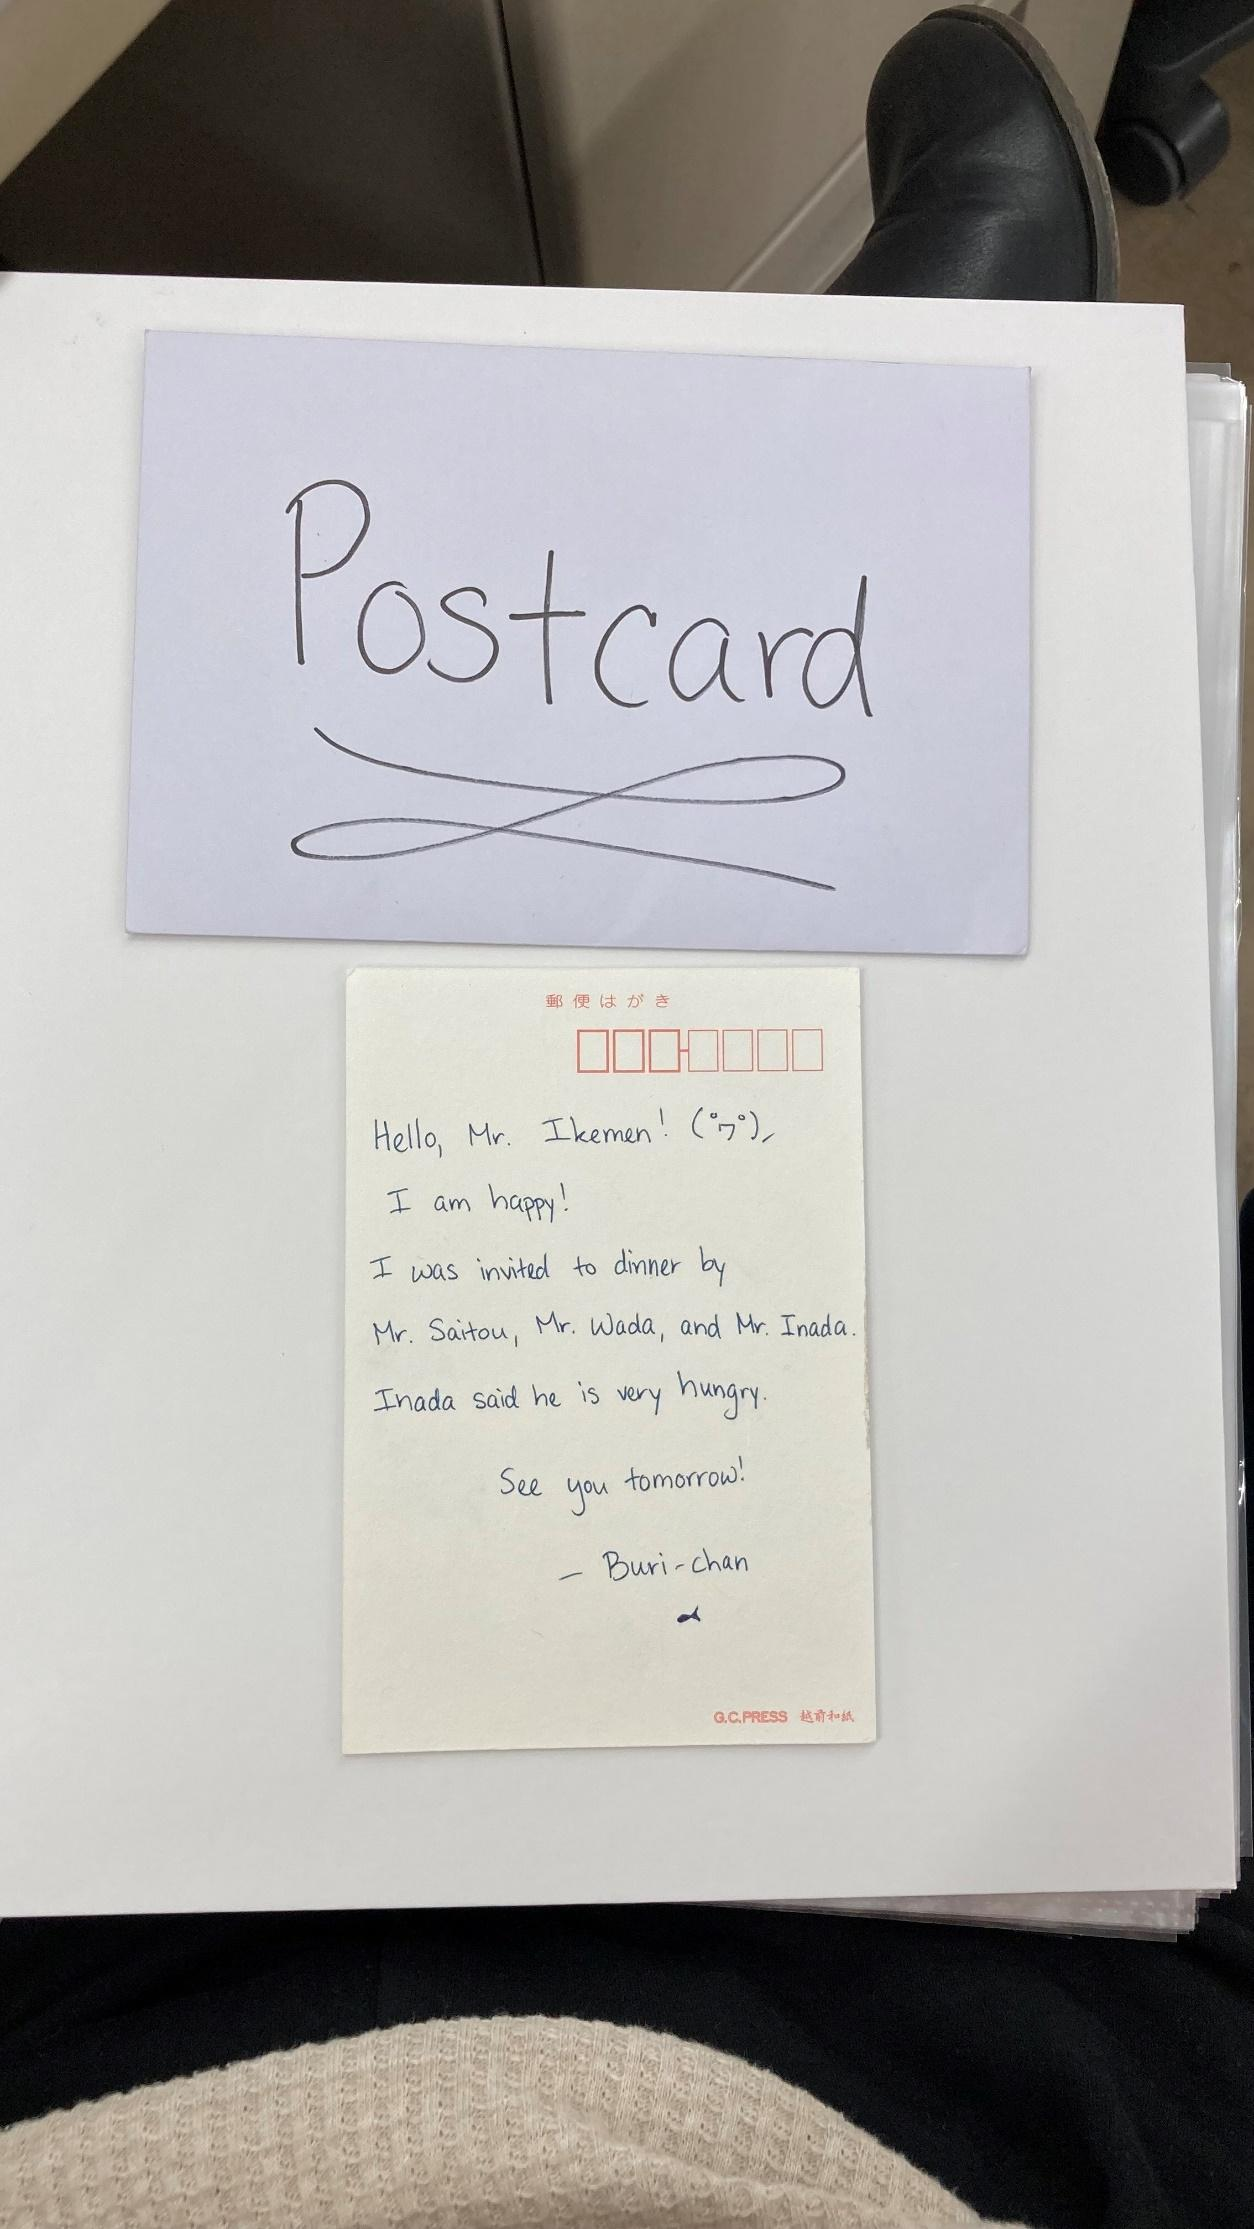 Postcard
郵便はがき
Hello, Mr. Ikemen! (°ワ°)ノ
I am happy!
I was invited to dinner by
Mr. Saitou, Mr. Wada, and Mr. Inada.
Inada said he is very hungry.
See you tomorrow!
- Buri-chan
G.C.PRESS 越前和紙